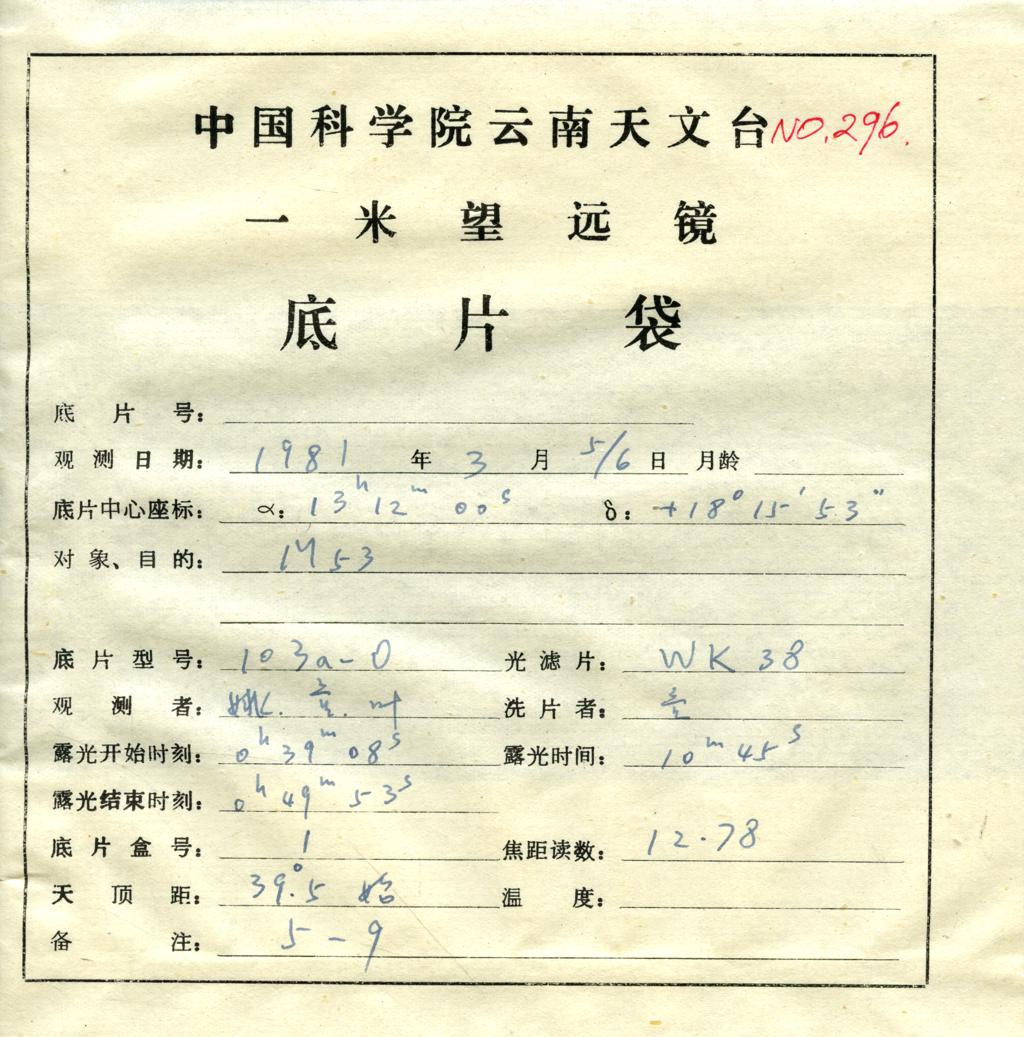 中国科学院云南天文台 NO.296.
一米望远镜
底片袋
底片号：
观测日期： 1981 年 3 月 5/6 日 月龄
底片中心座标： α： 13h 12m 00s δ： +18° 15′ 53″
对象、目的： M53
底片型号： 103a-O 光滤片： WK 38
观测者： 姚. . 叶 洗片者：
露光开始时刻： 0h 39m 08s 露光时间： 10m 45s
露光结束时刻： 0h 49m 53s
底片盒号： 1 焦距读数： 12.78
天顶距： 39°.5 始 温度：
备注： 5-9